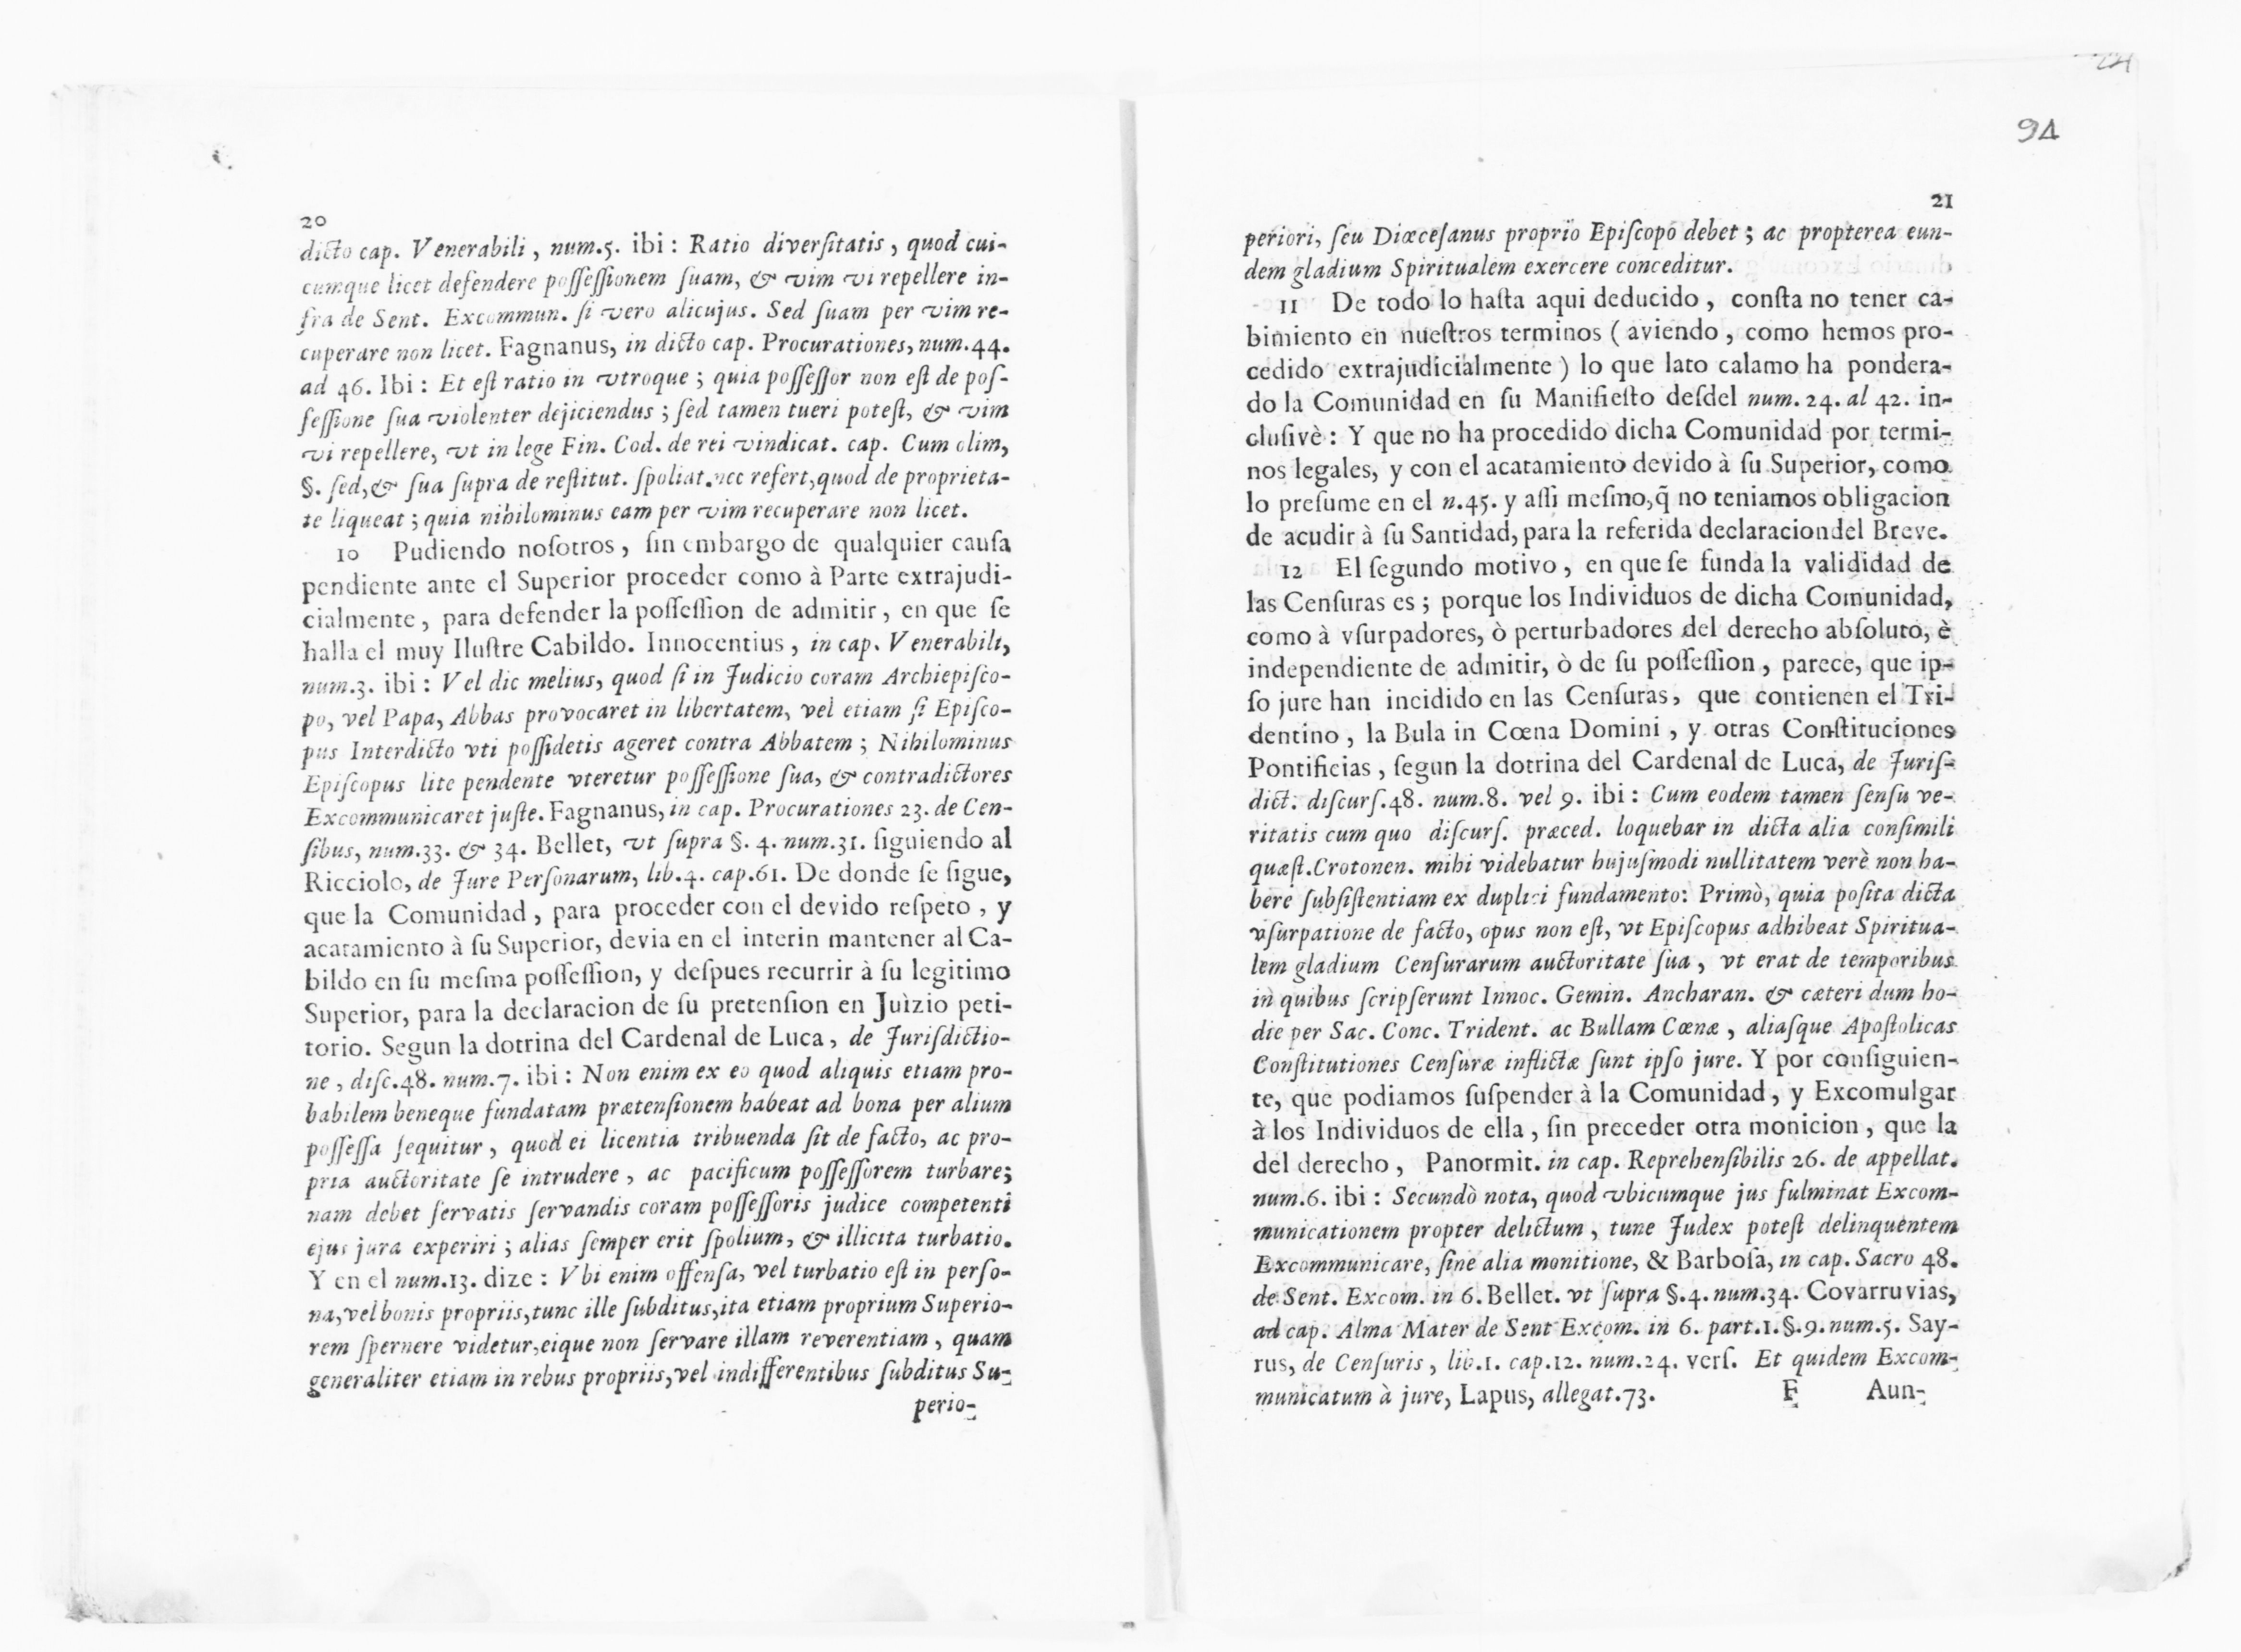 20
dicto cap. Venerabili, num.5. ibi: Ratio diverſitatis, quod cui-
cumque licet defendere poſſeſſionem ſuam, & vim vi repellere in-
fra de Sent. Excommun. ſi vero alicujus. Sed ſuam per vim re-
cuperare non licet. Fagnanus, in dicto cap. Procurationes, num.44.
ad 46. Ibi: Et eſt ratio in vtroque; quia poſſeſſor non eſt de poſ-
ſeſſione ſua violenter dejiciendus; ſed tamen tueri poteſt, & vim
vi repellere, vt in lege Fin. Cod. de rei vindicat. cap. Cum olim,
§. ſed, & ſua ſupra de reſtitut. ſpoliat. nec refert, quod de proprieta-
te liqueat; quia nihilominus eam per vim recuperare non licet.
10 Pudiendo noſotros, ſin embargo de qualquier cauſa
pendiente ante el Superior proceder como à Parte extrajudi-
cialmente, para defender la poſſeſſion de admitir, en que ſe
halla el muy Iluſtre Cabildo. Innocentius, in cap. Venerabili,
num.3. ibi: Vel dic melius, quod ſi in Judicio coram Archiepiſco-
po, vel Papa, Abbas provocaret in libertatem, vel etiam ſi Epiſco-
pus Interdicto vti poſſidetis ageret contra Abbatem; Nihilominus
Epiſcopus lite pendente vteretur poſſeſſione ſua, & contradictores
Excommunicaret juſte. Fagnanus, in cap. Procurationes 23. de Cen-
ſibus, num.33. & 34. Bellet, vt ſupra §. 4. num.31. ſiguiendo al
Ricciolo, de Jure Perſonarum, lib.4. cap.61. De donde ſe ſigue,
que la Comunidad, para proceder con el devido reſpeto, y
acatamiento à ſu Superior, devia en el interin mantener al Ca-
bildo en ſu meſma poſſeſſion, y deſpues recurrir à ſu legitimo
Superior, para la declaracion de ſu pretenſion en Juìzio peti-
torio. Segun la dotrina del Cardenal de Luca, de Juriſdictio-
ne, diſc.48. num.7. ibi: Non enim ex eo quod aliquis etiam pro-
babilem beneque fundatam prætenſionem habeat ad bona per alium
poſſeſſa ſequitur, quod ei licentia tribuenda ſit de facto, ac pro-
pria auctoritate ſe intrudere, ac pacificum poſſeſſorem turbare;
nam debet ſervatis ſervandis coram poſſeſſoris judice competenti
ejus jura experiri; alias ſemper erit ſpolium, & illicita turbatio.
Y en el num.13. dize: Vbi enim offenſa, vel turbatio eſt in perſo-
na, vel bonis propriis, tunc ille ſubditus, ita etiam proprium Superio-
rem ſpernere videtur, eique non ſervare illam reverentiam, quam
generaliter etiam in rebus propriis, vel indifferentibus ſubditus Su-
perio-
94
21
periori, ſeu Diœceſanus proprio Epiſcopo debet; ac propterea eun-
dem gladium Spiritualem exercere conceditur.
11 De todo lo haſta aqui deducido, conſta no tener ca-
bimiento en nueſtros terminos (aviendo, como hemos pro-
cedido extrajudicialmente) lo que lato calamo ha pondera-
do la Comunidad en ſu Manifieſto deſdel num. 24. al 42. in-
cluſivè: Y que no ha procedido dicha Comunidad por termi-
nos legales, y con el acatamiento devido à ſu Superior, como
lo preſume en el n.45. y aſſi meſmo, q̃ no teniamos obligacion
de acudir à ſu Santidad, para la referida declaraciondel Breve.
12 El ſegundo motivo, en que ſe funda la valididad de
las Cenſuras es; porque los Individuos de dicha Comunidad,
como à vſurpadores, ò perturbadores del derecho abſoluto, è
independiente de admitir, ò de ſu poſſeſſion, parece, que ip-
ſo jure han incidido en las Cenſuras, que contienen el Tri-
dentino, la Bula in Cœna Domini, y otras Conſtituciones
Pontificias, ſegun la dotrina del Cardenal de Luca, de Juriſ-
dict. diſcurſ.48. num.8. vel 9. ibi: Cum eodem tamen ſenſu ve-
ritatis cum quo diſcurſ. præced. loquebar in dicta alia conſimili
quæſt. Crotonen. mihi videbatur hujuſmodi nullitatem verè non ha-
bere ſubſiſtentiam ex duplici fundamento: Primò, quia poſita dicta
vſurpatione de facto, opus non eſt, vt Epiſcopus adhibeat Spiritua-
lem gladium Cenſurarum auctoritate ſua, vt erat de temporibus
in quibus ſcripſerunt Innoc. Gemin. Ancharan. & cæteri dum ho-
die per Sac. Conc. Trident. ac Bullam Cœnæ, aliaſque Apoſtolicas
Conſtitutiones Cenſuræ inflictæ ſunt ipſo jure. Y por conſiguien-
te, que podiamos ſuſpender à la Comunidad, y Excomulgar
à los Individuos de ella, ſin preceder otra monicion, que la
del derecho, Panormit. in cap. Reprehenſibilis 26. de appellat.
num.6. ibi: Secundò nota, quod vbicumque jus fulminat Excom-
municationem propter delictum, tunc Judex poteſt delinquentem
Excommunicare, ſine alia monitione, & Barboſa, in cap. Sacro 48.
de Sent. Excom. in 6. Bellet. vt ſupra §.4. num.34. Covarruvias,
ad cap. Alma Mater de Sent Excom. in 6. part.1.§.9.num.5. Say-
rus, de Cenſuris, lib.1. cap.12. num.24. verſ. Et quidem Excom-
municatum à jure, Lapus, allegat.73.
F Aun-